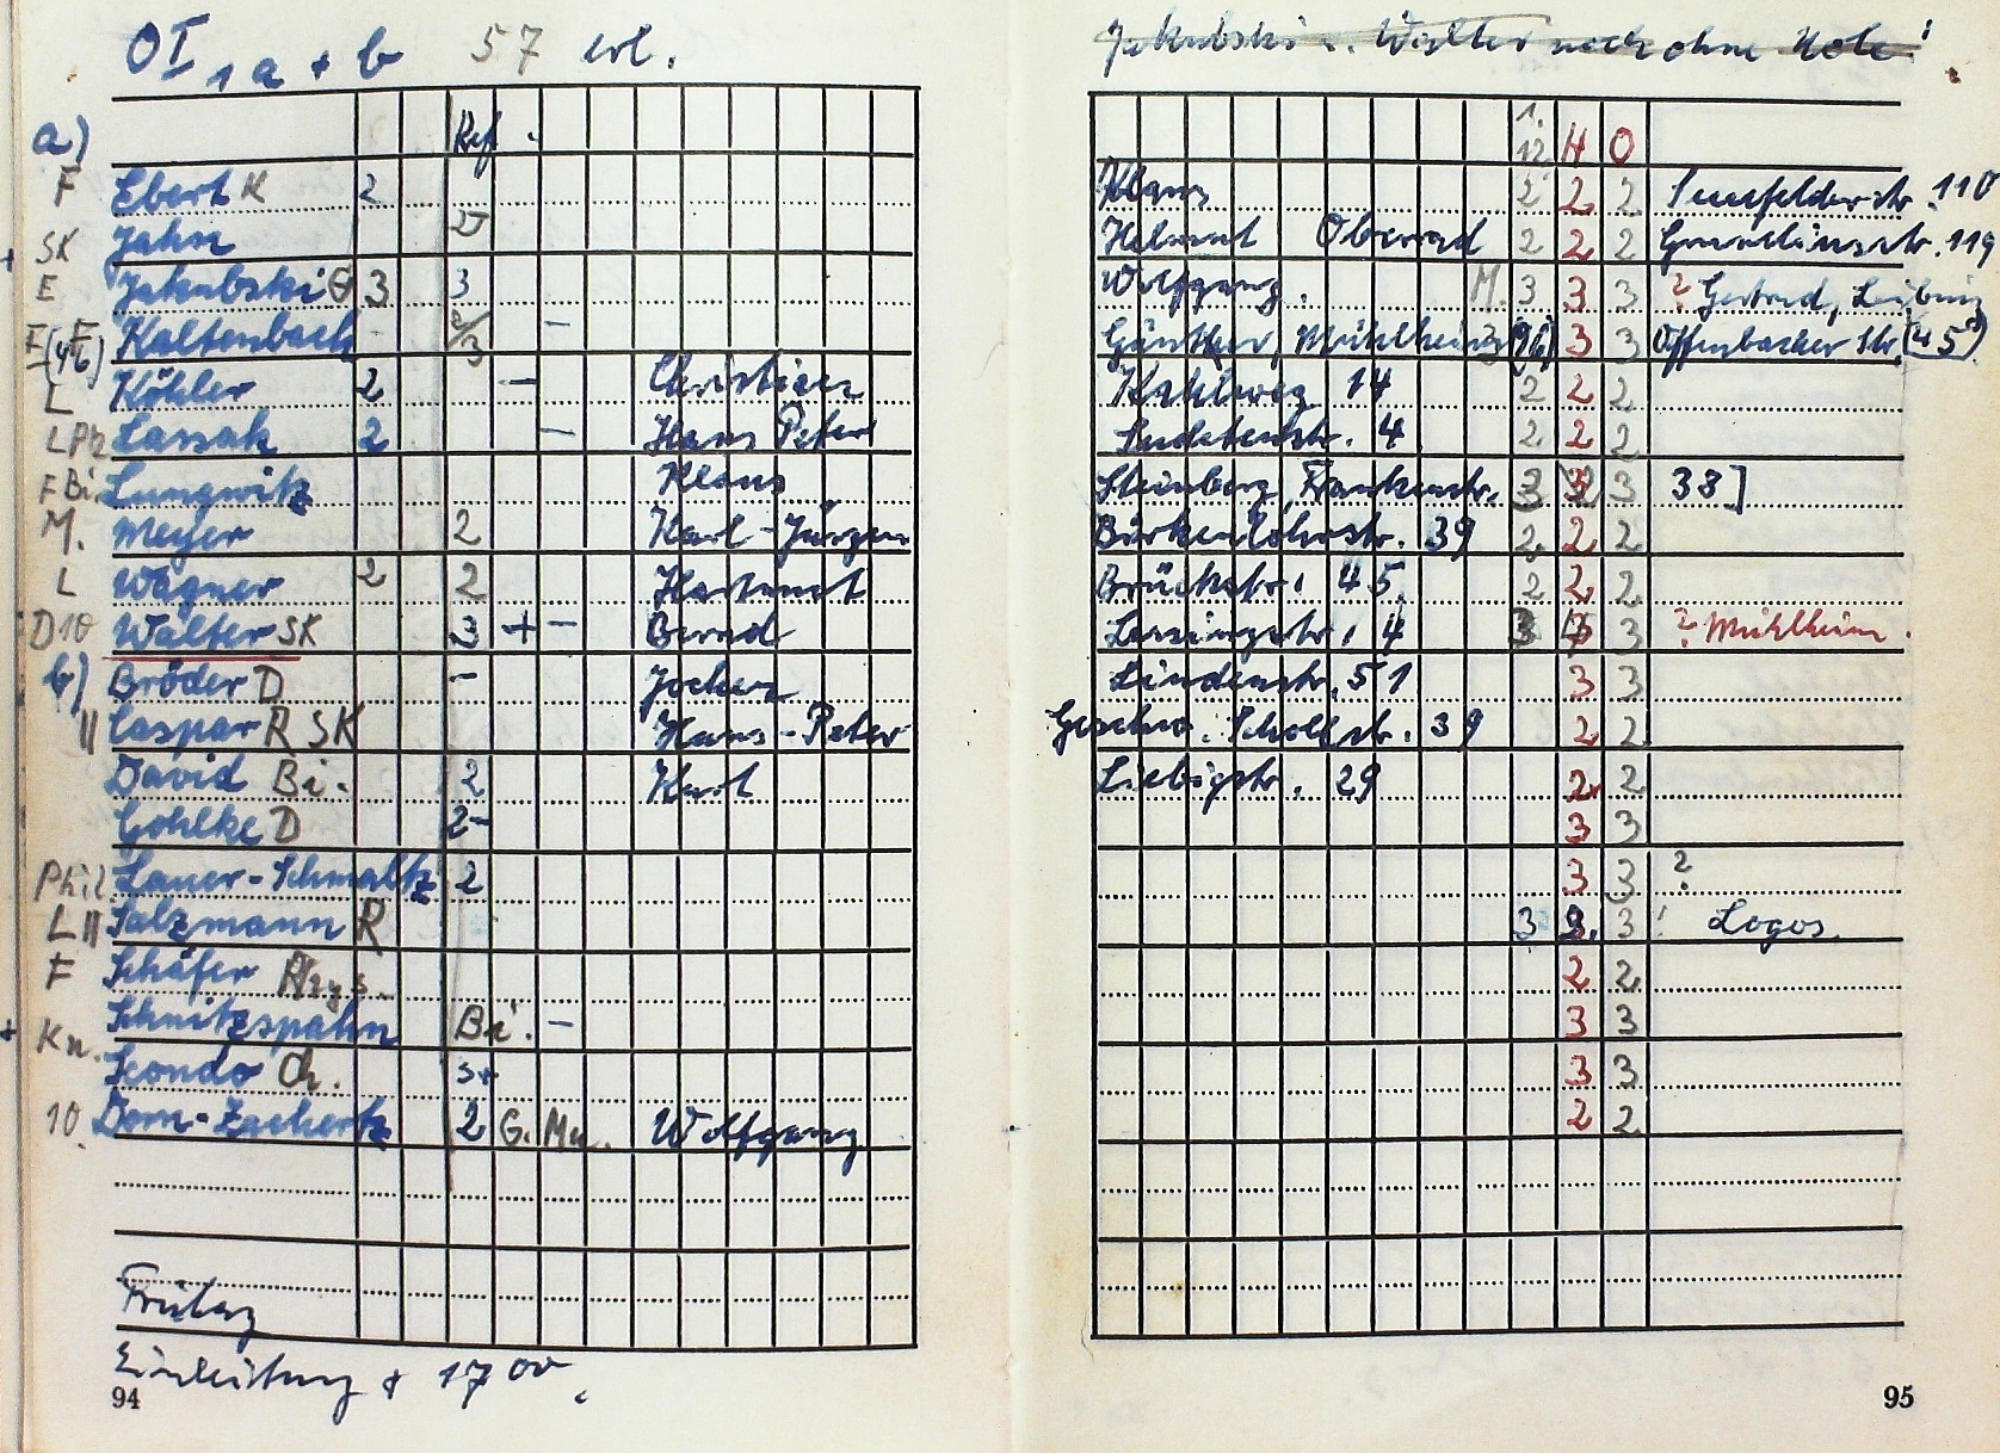 OI 1a + b 57 erl.
a) Ref.
F Ebert K 2
+ SK Jahn
E Jakubski G 3 3
Kaltenbach - 2/3 -
L Köhler 2 - Christian
LPh Lassak 2 - Hans Peter
F Bi. Lungwitz Klaus
M. Meyer 2 Karl-Jürgen
L Wagner 2 2 Hartmut
D10 Walter SK 3 + - Bernd
b) Bröder D - Jochen
II Caspar R SK Hans-Peter
David Bi. 2 Kurt
Gohlke D 2-
Phil. Lauer-Schmaltz 2
L II Salzmann R
F Schäfer Phys.
+ Kn. Schnitzspahn Bi. -
Scondo Ch. 3+
10. Dorn-Zachertz 2 G. Mu. Wolfgang
Freitag
Einleitung + 17 00
94
Jakubski u. Walter noch ohne Note!
1. 12 H O
Klaus 2 2 2 Senefelderstr. 110
Helmut Oberrad 2 2 2 119
Wolfgang. M. 3 3 3 ? Gertrud,
Günther, Mühlheim 3 (96) 3 3 Offenbacher Str. (45)
Kahlweg 14 2 2 2
Sudetenstr. 4 2 2 2
Steinberg, Frankenstr. 3 3 3 38]
Birkenlohrstr. 39 2 2 2
Brückstr. 45 2 2 2
Lessingstr. 4 3 3 3 ? Mühlheim.
Lindenstr. 51 3 3
Geschw. Schollstr. 39 2 2
Liebigstr. 29 2 2
3 3
3 3 ?
3 3 3 ! Logos.
2 2
3 3
3 3
2 2
95